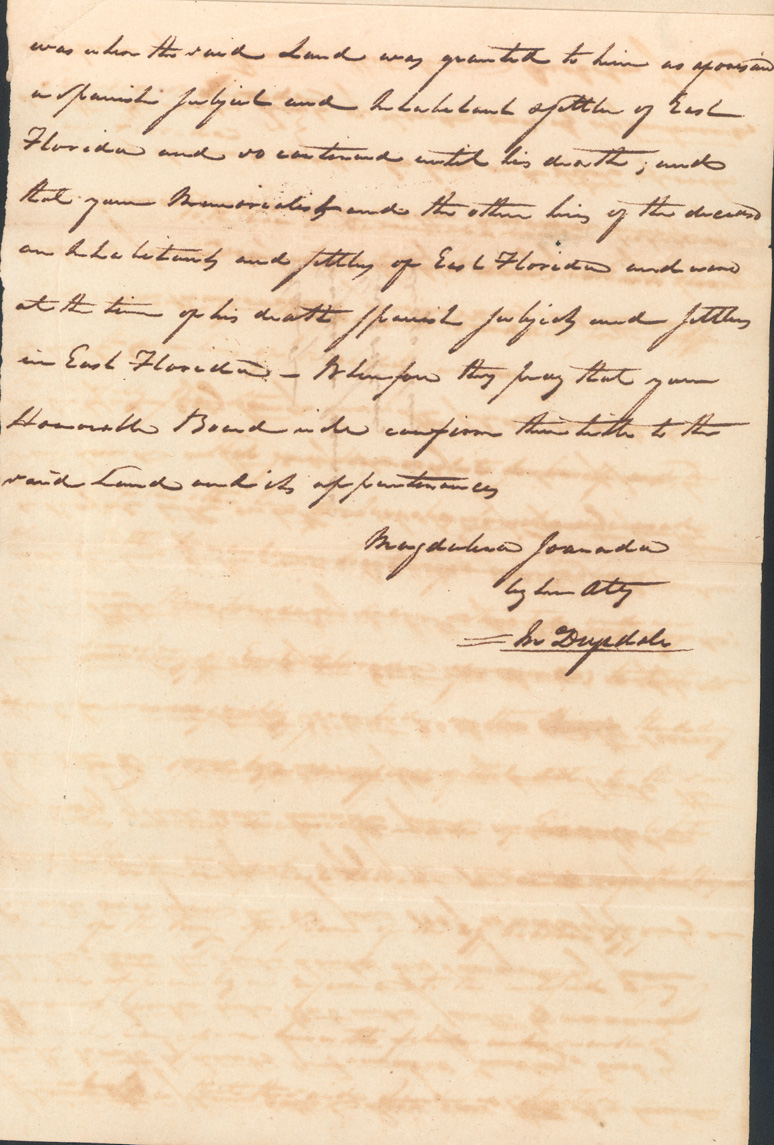 was when the said Land was granted to him as aforesaid
a Spanish Subject and Inhabitant & settler of East
Florida and so continued until his death; and
that your Memorialist and the other heirs of the deceased
are Inhabitants and settlers of East Florida and were
at the time of his death Spanish Subjects and settlers
in East Florida – Wherefore they pray that your
Honorable Board will confirm their title to the
said Land and its appurtenances
Magdalena Joanada
by her Atty
Jno Drysdale